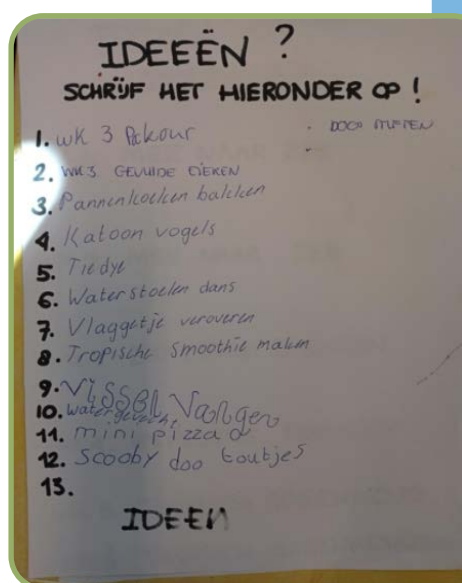 IDEEËN ?
SCHRIJF HET HIERONDER OP !
1. WK 3 Pakour
2. WK3 GEVULDE EIEREN
3. Pannenkoeken bakken
4. Katoon vogels
5. Tiedye
6. Waterstoelen dans
7. Vlaggetje veroveren
8. Tropische smoothie maken
9. Vissen vangen
10. Watergevecht
11. mini pizza
12. Scooby doo toutjes
13.
IDEEN